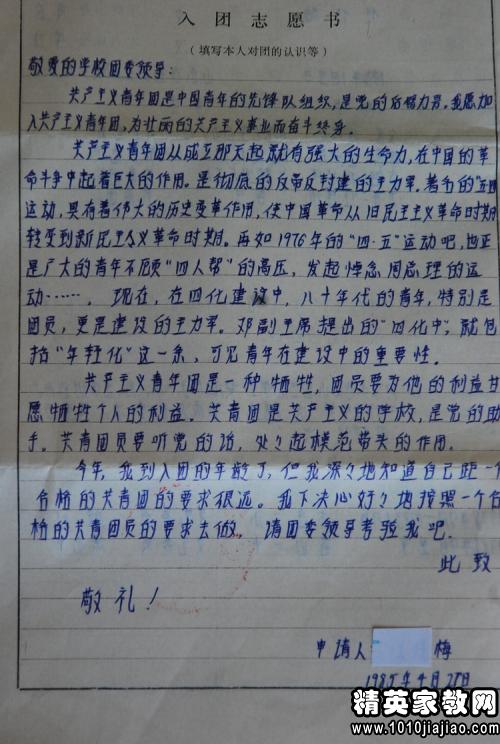 入团志愿书
（填写本人对团的认识等）
敬爱的学校团委领导：
共产主义青年团是中国青年的先锋队组织，是党的后备力量。我愿加
入共产主义青年团，为壮丽的共产主义事业而奋斗终身。
共产主义青年团从成立那天起就有强大的生命力，在中国的革
命斗争中起着巨大的作用。是彻底的反帝反封建的主力军。著名的“五四
运动，具有着伟大的历史变革作用，使中国革命从旧民主主义革命时期
转变到新民主主义革命时期。再如1976年的“四·五”运动吧，也正
是广大的青年不顾“四人帮”的高压，发起悼念周总理的运
动……。现在，在四化建设中，八十年代的青年，特别是
团员，更是建设的主力军。邓副主席提出的“四化中”，就包
括“年轻化”这一条，可见青年在建设中的重要性。
共产主义青年团是一种牺牲，团员要为他的利益甘
愿牺牲个人的利益。共青团是共产主义的学校，是党的助
手。共青团员要听党的话，处处起模范带头的作用。
今年，我到入团的年龄了，但我深深地知道自己距一个
合格的共青团的要求很远。我下决心好好地按照一个合
格的共青团员的要求去做。请团委领导考验我吧。
此致
敬礼！
申请人 梅
198 年4月 日
精英家教网
www.1010jiajiao.com